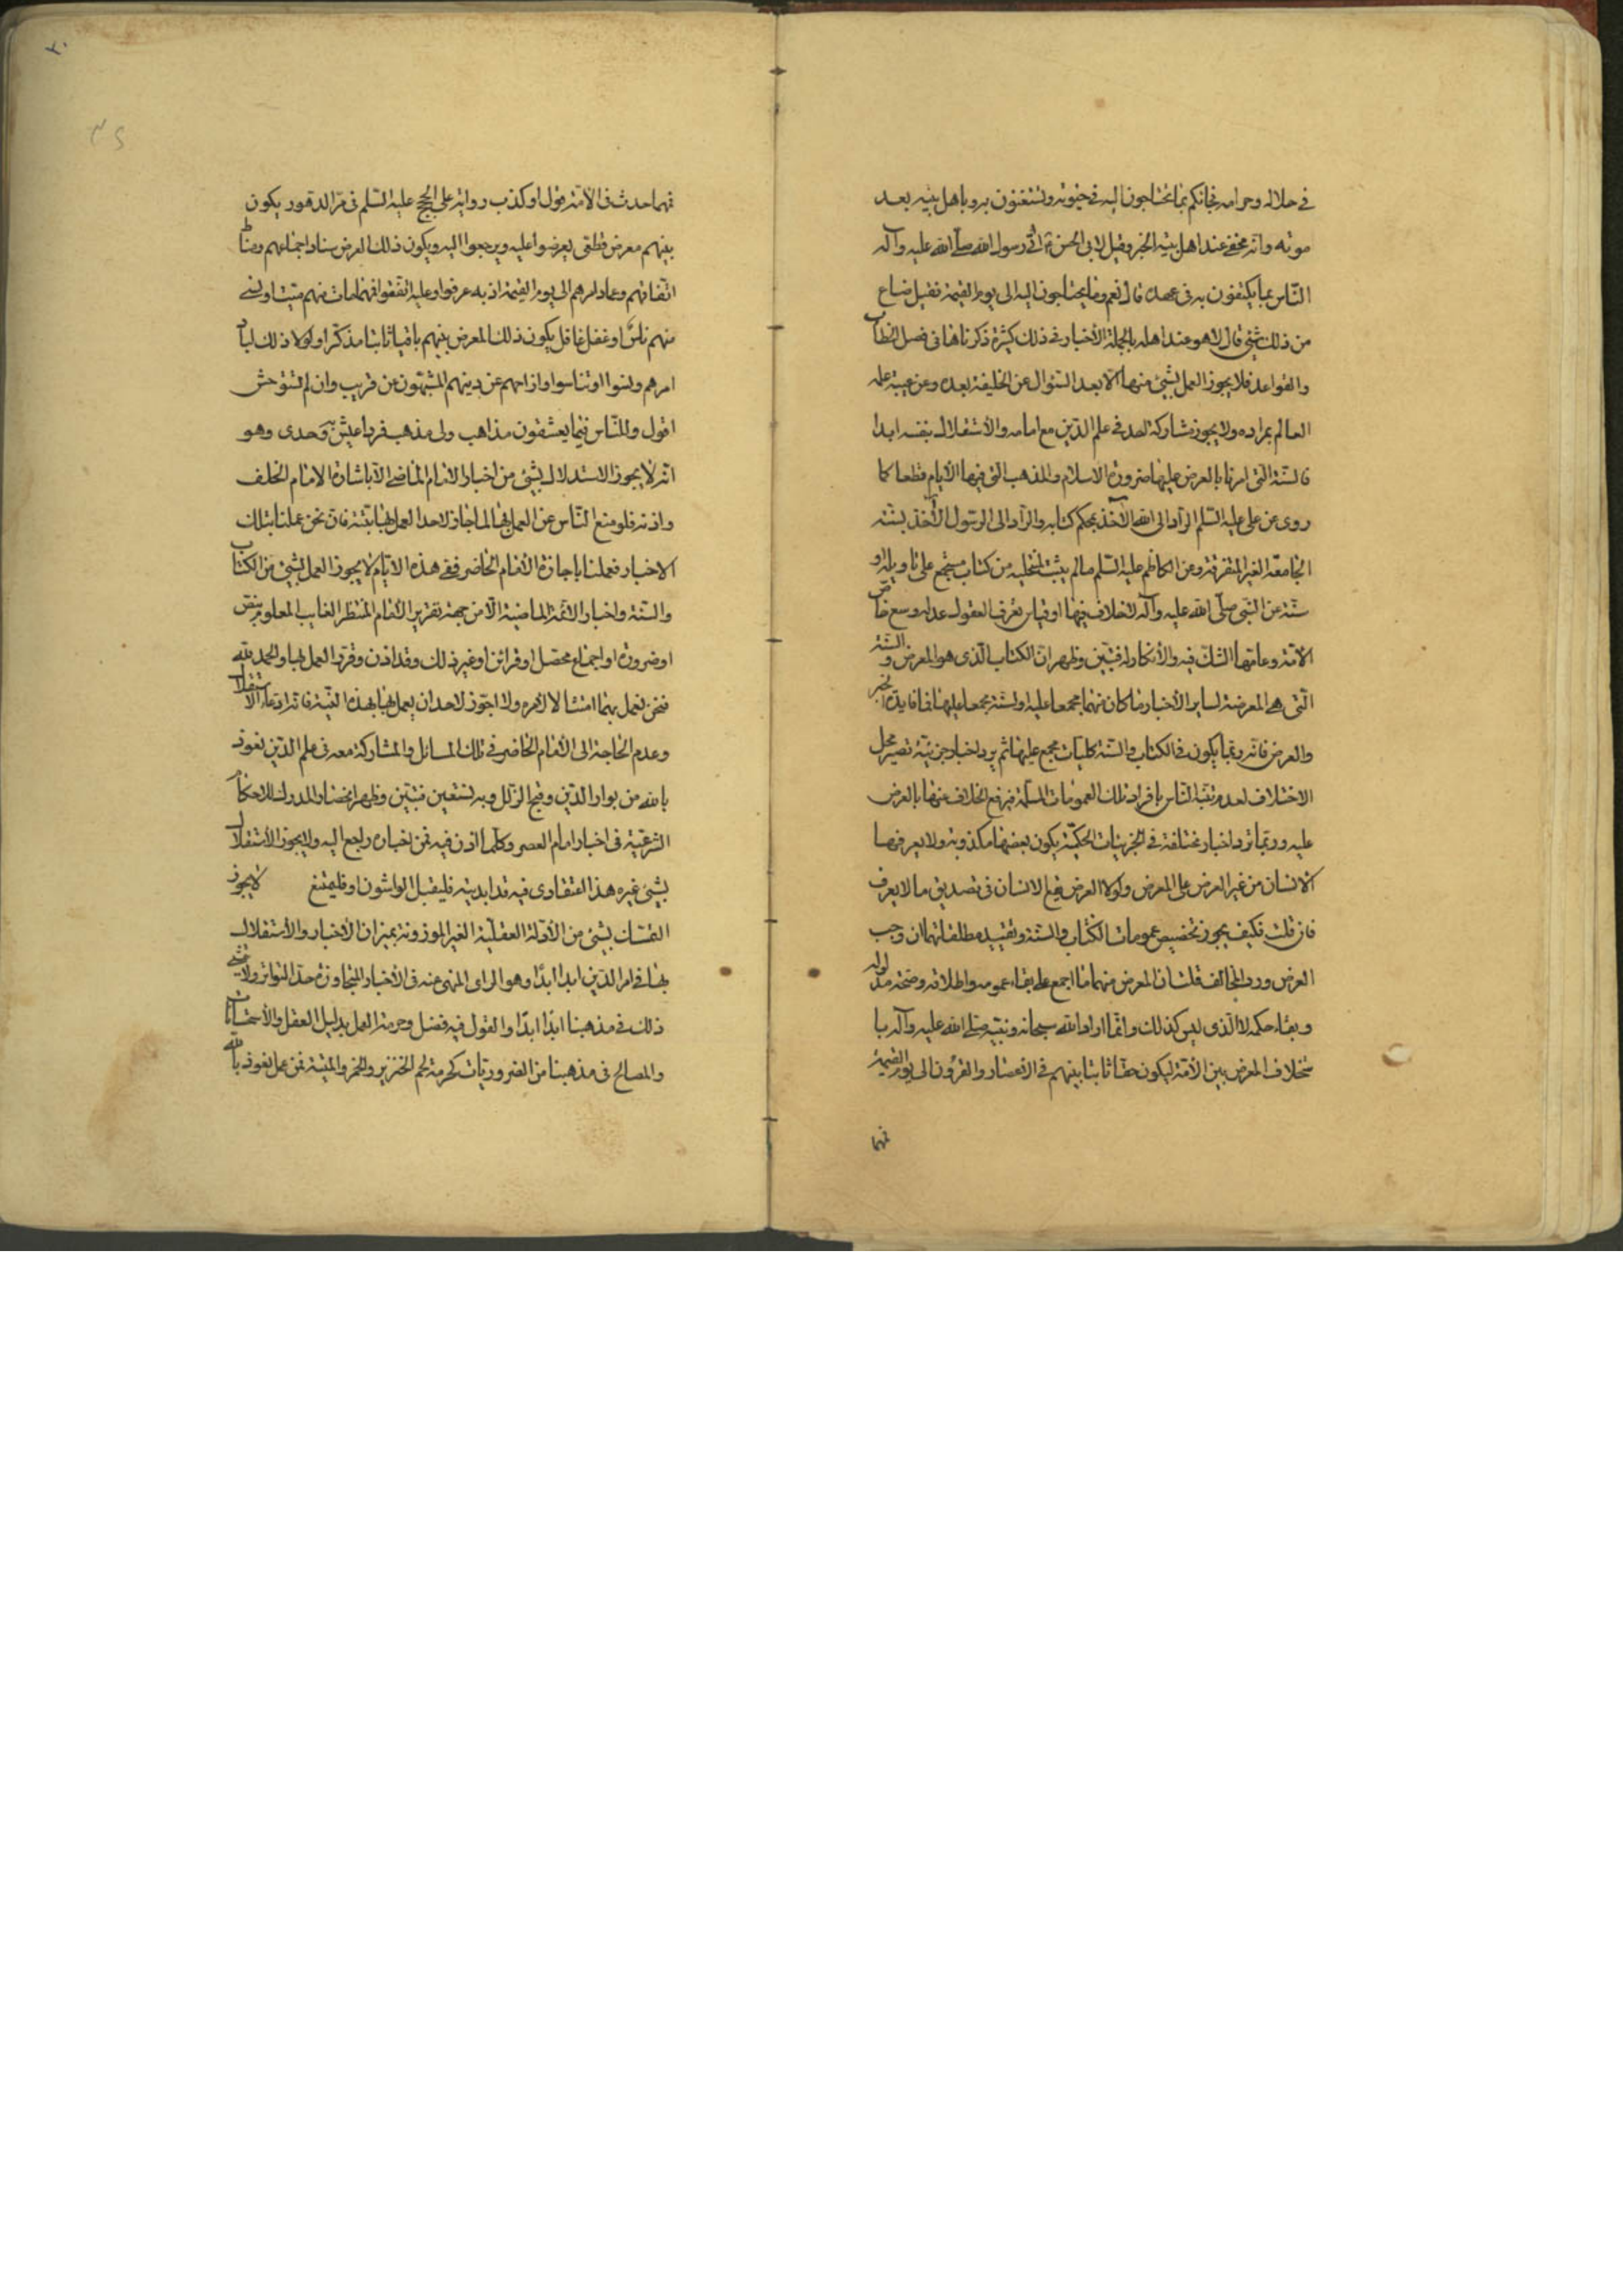 في حلاله وحرامه فجائكم بما تحتاجون اليه في حيوته وتستغنون به وباهل بيته بعد
موته وانه مخفي عند اهل بيته الخبر وقيل لابي الحسن ع اتى رسول الله صلى الله عليه وآله
الناس بما يكتفون به في عهده قال نعم وما يحتاجون اليه الى يوم القيمة فقيل ضاع
من ذلك شئ قال لا هو عند اهله بالجملة الأخبار في ذلك كثيرة ذكرناها في فصل الخطاب
والقواعد فلا يجوز العمل بشئ منها الا بعد السئوال عن الخليفة بعده وعن عيبة علمه
العالم بمراده ولا يجوز مشاركة احد في علم الدين مع امامه والأستقلال بنفسه ابدا
فالسنة التي امرنا بالعرض عليها ضرورة الاسلام والمذهب التي فيها الأيام قطعا كما
روى عن علي عليه السلم الراد الى الله الآخذ بمحكم كتابه والراد الى الرسول الآخذ بسنته
الجامعة الغير المتفرقة وعن الكاظم عليه السلم ما لم يثبت لمنتحليه من كتاب مستجمع على تاويله او
سنة عن النبي صلى الله عليه وآله لا خلاف فيها او قياس تعرف العقول عدله وسع خاص
الامة وعامتها الشك فيه والأنكار له فتبين وظهر ان الكتاب الذي هو المعرض والسنة
التي هي المعرضة لساير الأخبار ما كان منهما مجمعا عليه او سنة مجمعا عليها فما فايدة الخبر
والعرض فانه ربما يكون في الكتاب والسنة كليات مجمع عليها ثم يرد اخبار جزئية تصير محل
الاختلاف لعدم تنبه الناس بافراد تلك العمومات المسلمة فيرفع الخلاف عنها بالعرض
عليه وربما ترد اخبار مختلفة في الجزئيات الحكمية يكون بعضها مكذوبة ولا يعرفها
الانسان من غير العرض على المعرض ولولا العرض يقع الانسان في تصديق ما لا يعرف
فان قلت فكيف يجوز تخصيص عمومات الكتاب والسنة وتقييد مطلقاتهما ان وجب
العرض ورد المخالف قلت ان المعرض منهما ما اجمع على بقاء عمومه واطلاقه وصحة مدلوله
وبقاء حكمه لا الذي ليس كذلك وانما اراد الله سبحانه ونبيه صلى الله عليه وآله با
ستخلاف المعرض بين الأمة ليكون حقا ثابتا بينهم في الأعصار والقرون الى يوم القيمة
فهما
فهما حدث في الأمة قول او كذب رواية على الحجج عليهم السلم في مر الدهور يكون
بينهم معرض قطعي يعرضوا عليه ويرجعوا اليه ويكون ذلك العرض سناد اجتماعهم ومناط
اتفاقهم وعماد امرهم الى يوم القيمة اذ به عرفوا وعليه اتفقوا فمهما مات منهم ميت او نسي
منهم ناس او غفل غافل يكون ذلك المعرض بينهم باقيا ثابتا مذكرا ولولا ذلك لباد
امرهم ونسوا او تناسوا وازاحهم عن دينهم المشبهون عن قريب وان لم تستوحش
اقول وللناس فيما يعشقون مذاهب ولي مذهب فرد اعيش به وحدى وهو
انه لا يجوز الاستدلال بشئ من اخبار الامام الماضي الا باشارة الامام الخلف
واذنه فلو منع الناس عن العمل بها لما جاز لاحد العمل بها بتة فان نحن عملنا بتلك
الاخبار فعملنا باجازة الأمام الحاضر ففي هذه الايام لا يجوز العمل بشئ من الكتاب
والسنة واخبار الائمة الماضية الا من جهة تقرير الأمام المنتظر الغايب المعلوم بنص
او ضرورة او اجماع محصل او قرائن او غير ذلك وقد اذن وقرر العمل بها والحمد لله
فنحن نعمل بهما امتثالا لأمره ولا اجوز لاحد ان يعمل بها بهذه النية فانه ادعاء الاستقلال
وعدم الحاجة الى الأمام الحاضر في تلك المسائل والمشاركة معه في علم الدين نعوذ
بالله من بوار الدين وقبح الزلل وبه نستعين فتبين وظهر انحصار المدرك للاحكام
الشرعية في اخبار امام العصر وكلما اذن فيه فمن اخباره راجع اليه ولا يجوز الأستقلال
بشئ غيره هذا اعتقادى فيه قد ابديته فليقبل الواشون او فليمنع لا يجوز
التمسك بشئ من الأدلة العقلية الغير الموزونة بميزان الأخبار والأستقلال
بها في امر الدين ابدا ابدا وهو الراى المنهى عنه في الأخبار المتجاوزة حد التواتر ولا يمشي
ذلك في مذهبنا ابدا ابدا والقول فيه فصل وحرمة العمل بدليل العقل والأستحسانات
والمصالح في مذهبنا من الضروريات كحرمة لحم الخنزير والخمر والميتة فمن عمل نعوذ بالله